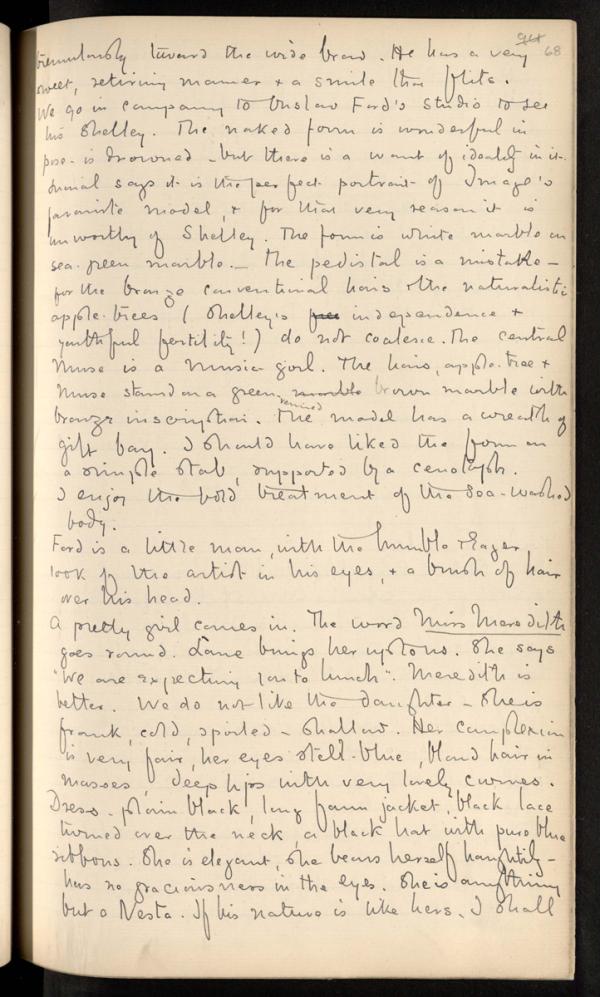 68
tremulously toward the wide brow. He has a very
sweet, retiring manner & a smile that flits.
We go in company to Onslow Ford's Studio to see
his Shelley. The naked form is wonderful in
pose - is drowned - but there is a want of ideality in it.
says it is the perfect portrait of Image's
favourite model, & for that very reason it is
unworthy of Shelley. The form is white marble on
sea-green marble. — The pedistal is a mistake —
for the bronze conventional lions & the naturalistic
apple-trees ( Shelley's free independence &
youthful fertility!) do not coalesce. The central
Muse is a music girl. The lions, apple-tree &
Muse stand on a green marble brown marble with
bronze inscription. The model has a wreath of
gilt bay. I should have liked the form on
a simple slab, supported by a cenotaph.
I enjoy the bold treatment of the sea-washed
body.
Ford is a little man, with the humble & eager
look of the artist in his eyes, & a brush of hair
over his head.
A pretty girl comes in. The word Miss Meredith
goes round. Lane brings her up to us. She says
"We are expecting you to lunch". Meredith is
better. We do not like the daughter - She is
frank, cold, spoiled - shallow. Her complexion
is very fair, her eyes steel-blue, blond hair in
masses, deep hips with very lovely curves.
Dress - plain black, long fawn jacket, black lace
turned over the neck, a black hat with pure blue
ribbons. She is elegant, she bears herself haughtily -
has no graciousness in the eyes. She is anything
but a Nesta. If his nature is like hers, I shall